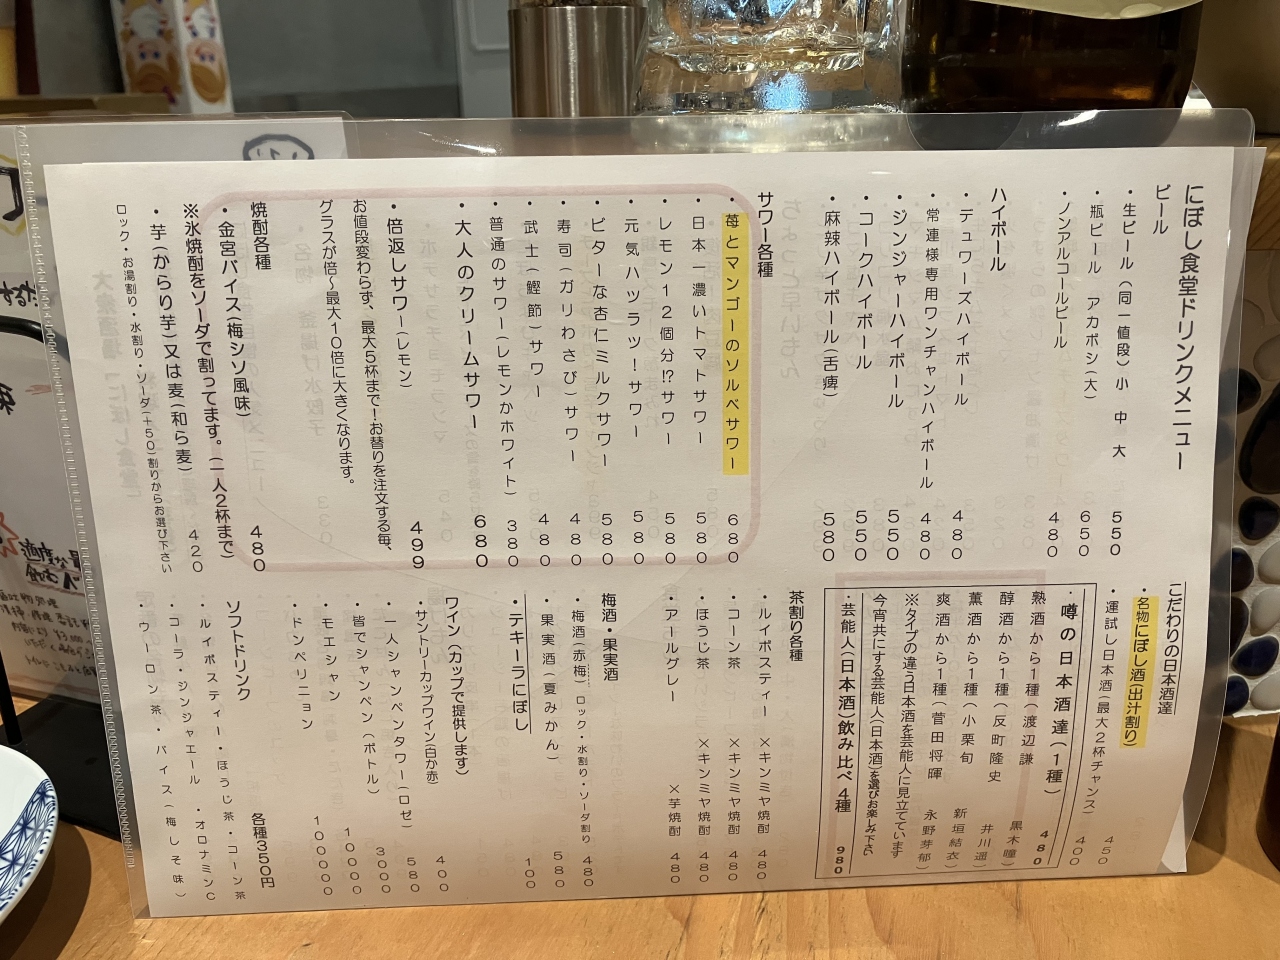 にぼし食堂ドリンクメニュー
ビール
・生ビール(同一値段)小 中 大 550
・瓶ビール アカボシ(大) 650
・ノンアルコールビール 480
ハイボール
・デュワーズハイボール 480
・常連様専用ワンチャンハイボール 480
・ジンジャーハイボール 550
・コークハイボール 550
・麻辣ハイボール(舌痺) 580
サワー各種
・苺とマンゴーのソルベサワー 680
・日本一濃いトマトサワー 580
・レモン12個分!?サワー 580
・元気ハツラツ!サワー 580
・ビターな杏仁ミルクサワー 580
・寿司(ガリわさび)サワー 480
・武士(鰹節)サワー 480
・普通のサワー(レモンかホワイト) 380
・大人のクリームサワー 680
・倍返しサワー(レモン) 499
お値段変わらず、最大5杯まで!お替りを注文する毎、
グラスが倍〜最大10倍に大きくなります。
焼酎各種
・金宮バイス(梅シソ風味) 480
※氷焼酎をソーダで割ってます。(一人2杯まで)
・芋(からり芋)又は麦(和ら麦) 420
ロック・お湯割り・水割り・ソーダ(+50)割りからお選び下さい
こだわりの日本酒達
・名物にぼし酒(出汁割り)
・運試し日本酒(最大2杯チャンス) 450
400
・噂の日本酒達(1種) 480
熟酒から1種(渡辺謙 黒木瞳)
醇酒から1種(反町隆史 井川遥)
薫酒から1種(小栗旬 新垣結衣)
爽酒から1種(菅田将暉 永野芽郁)
※タイプの違う日本酒を芸能人に見立てています
今宵共にする芸能人(日本酒)を選びお楽しみ下さい
・芸能人(日本酒)飲み比べ4種 980
茶割り各種
・ルイボスティー ×キンミヤ焼酎 480
・コーン茶 ×キンミヤ焼酎 480
・ほうじ茶 ×キンミヤ焼酎 480
・アールグレー ×芋焼酎 480
梅酒・果実酒
・梅酒(赤梅) ロック・水割り・ソーダ割り 480
・果実酒(夏みかん) 580
・テキーラにぼし 100
ワイン(カップで提供します)
・サントリーカップワイン(白か赤) 400
・一人シャンペンタワー(ロゼ) 580
・皆でシャンペン(ボトル) 3000
・モエシャン 10000
・ドンペリニョン 100000
ソフトドリンク 各種350円
・ルイボスティー・ほうじ茶・コーン茶
・コーラ・ジンジャエール ・オロナミンC
・ウーロン茶・バイス(梅しそ味)